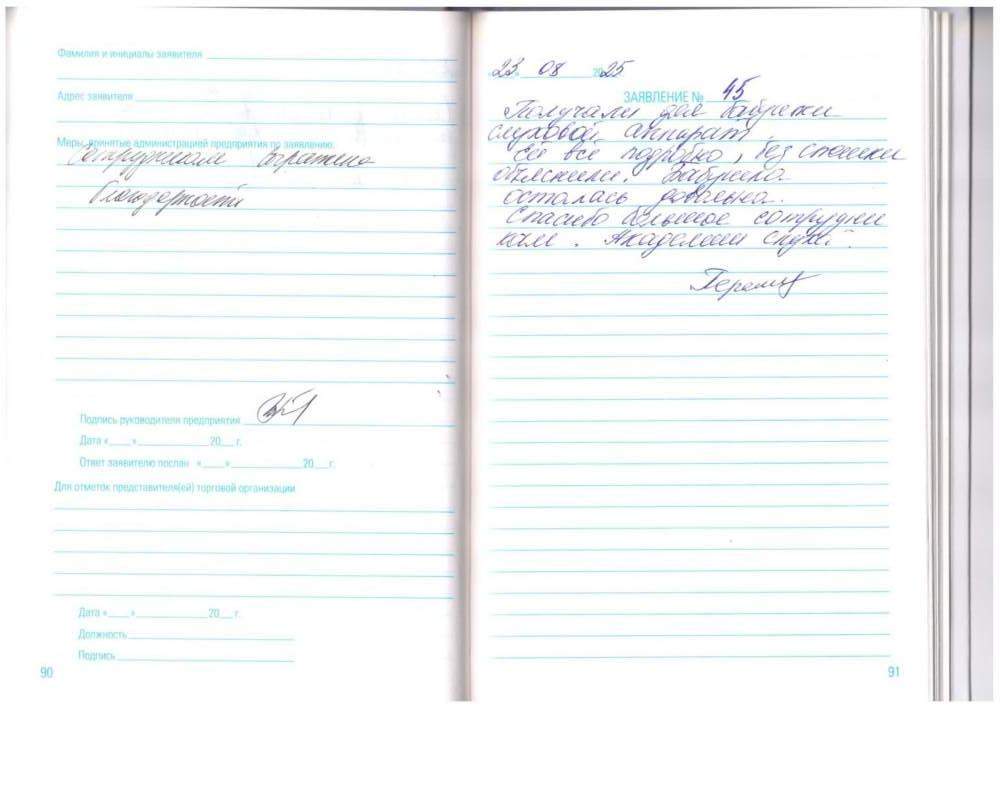 Фамилия и инициалы заявителя
Адрес заявителя
Меры, принятые администрацией предприятия по заявлению:
Сотрудникам выражена
благодарность
Подпись руководителя предприятия
Дата «___»__________20__ г.
Ответ заявителю послан «___»__________20__ г.
Для отметок представителя(ей) торговой организации
Дата «___»__________20__ г.
Должность
Подпись
90
23 08 2025
ЗАЯВЛЕНИЕ № 45
Получали для бабушки
слуховой аппарат.
Ей всё подробно, без спешки
объяснили. Бабушка
осталась довольна.
Спасибо большое сотрудни
кам. Академии слуха.
91